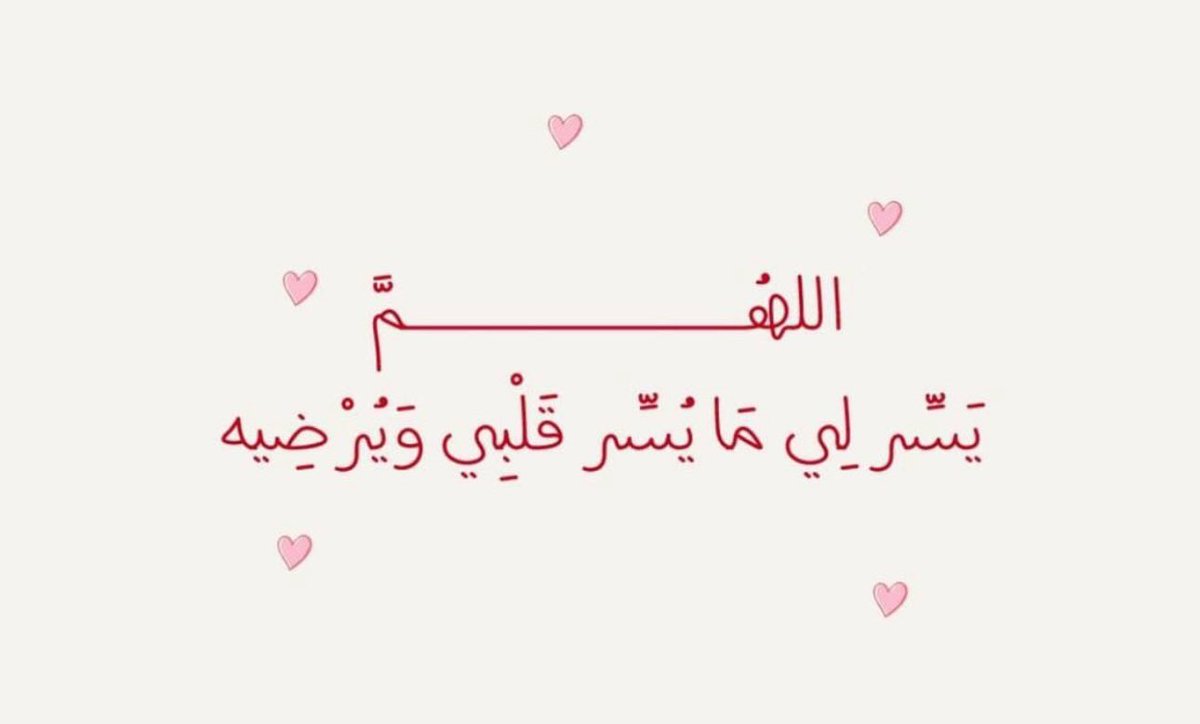 اللهُمَّ
يَسِّر لِي مَا يُسِّر قَلْبِي وَيُرْضِيه